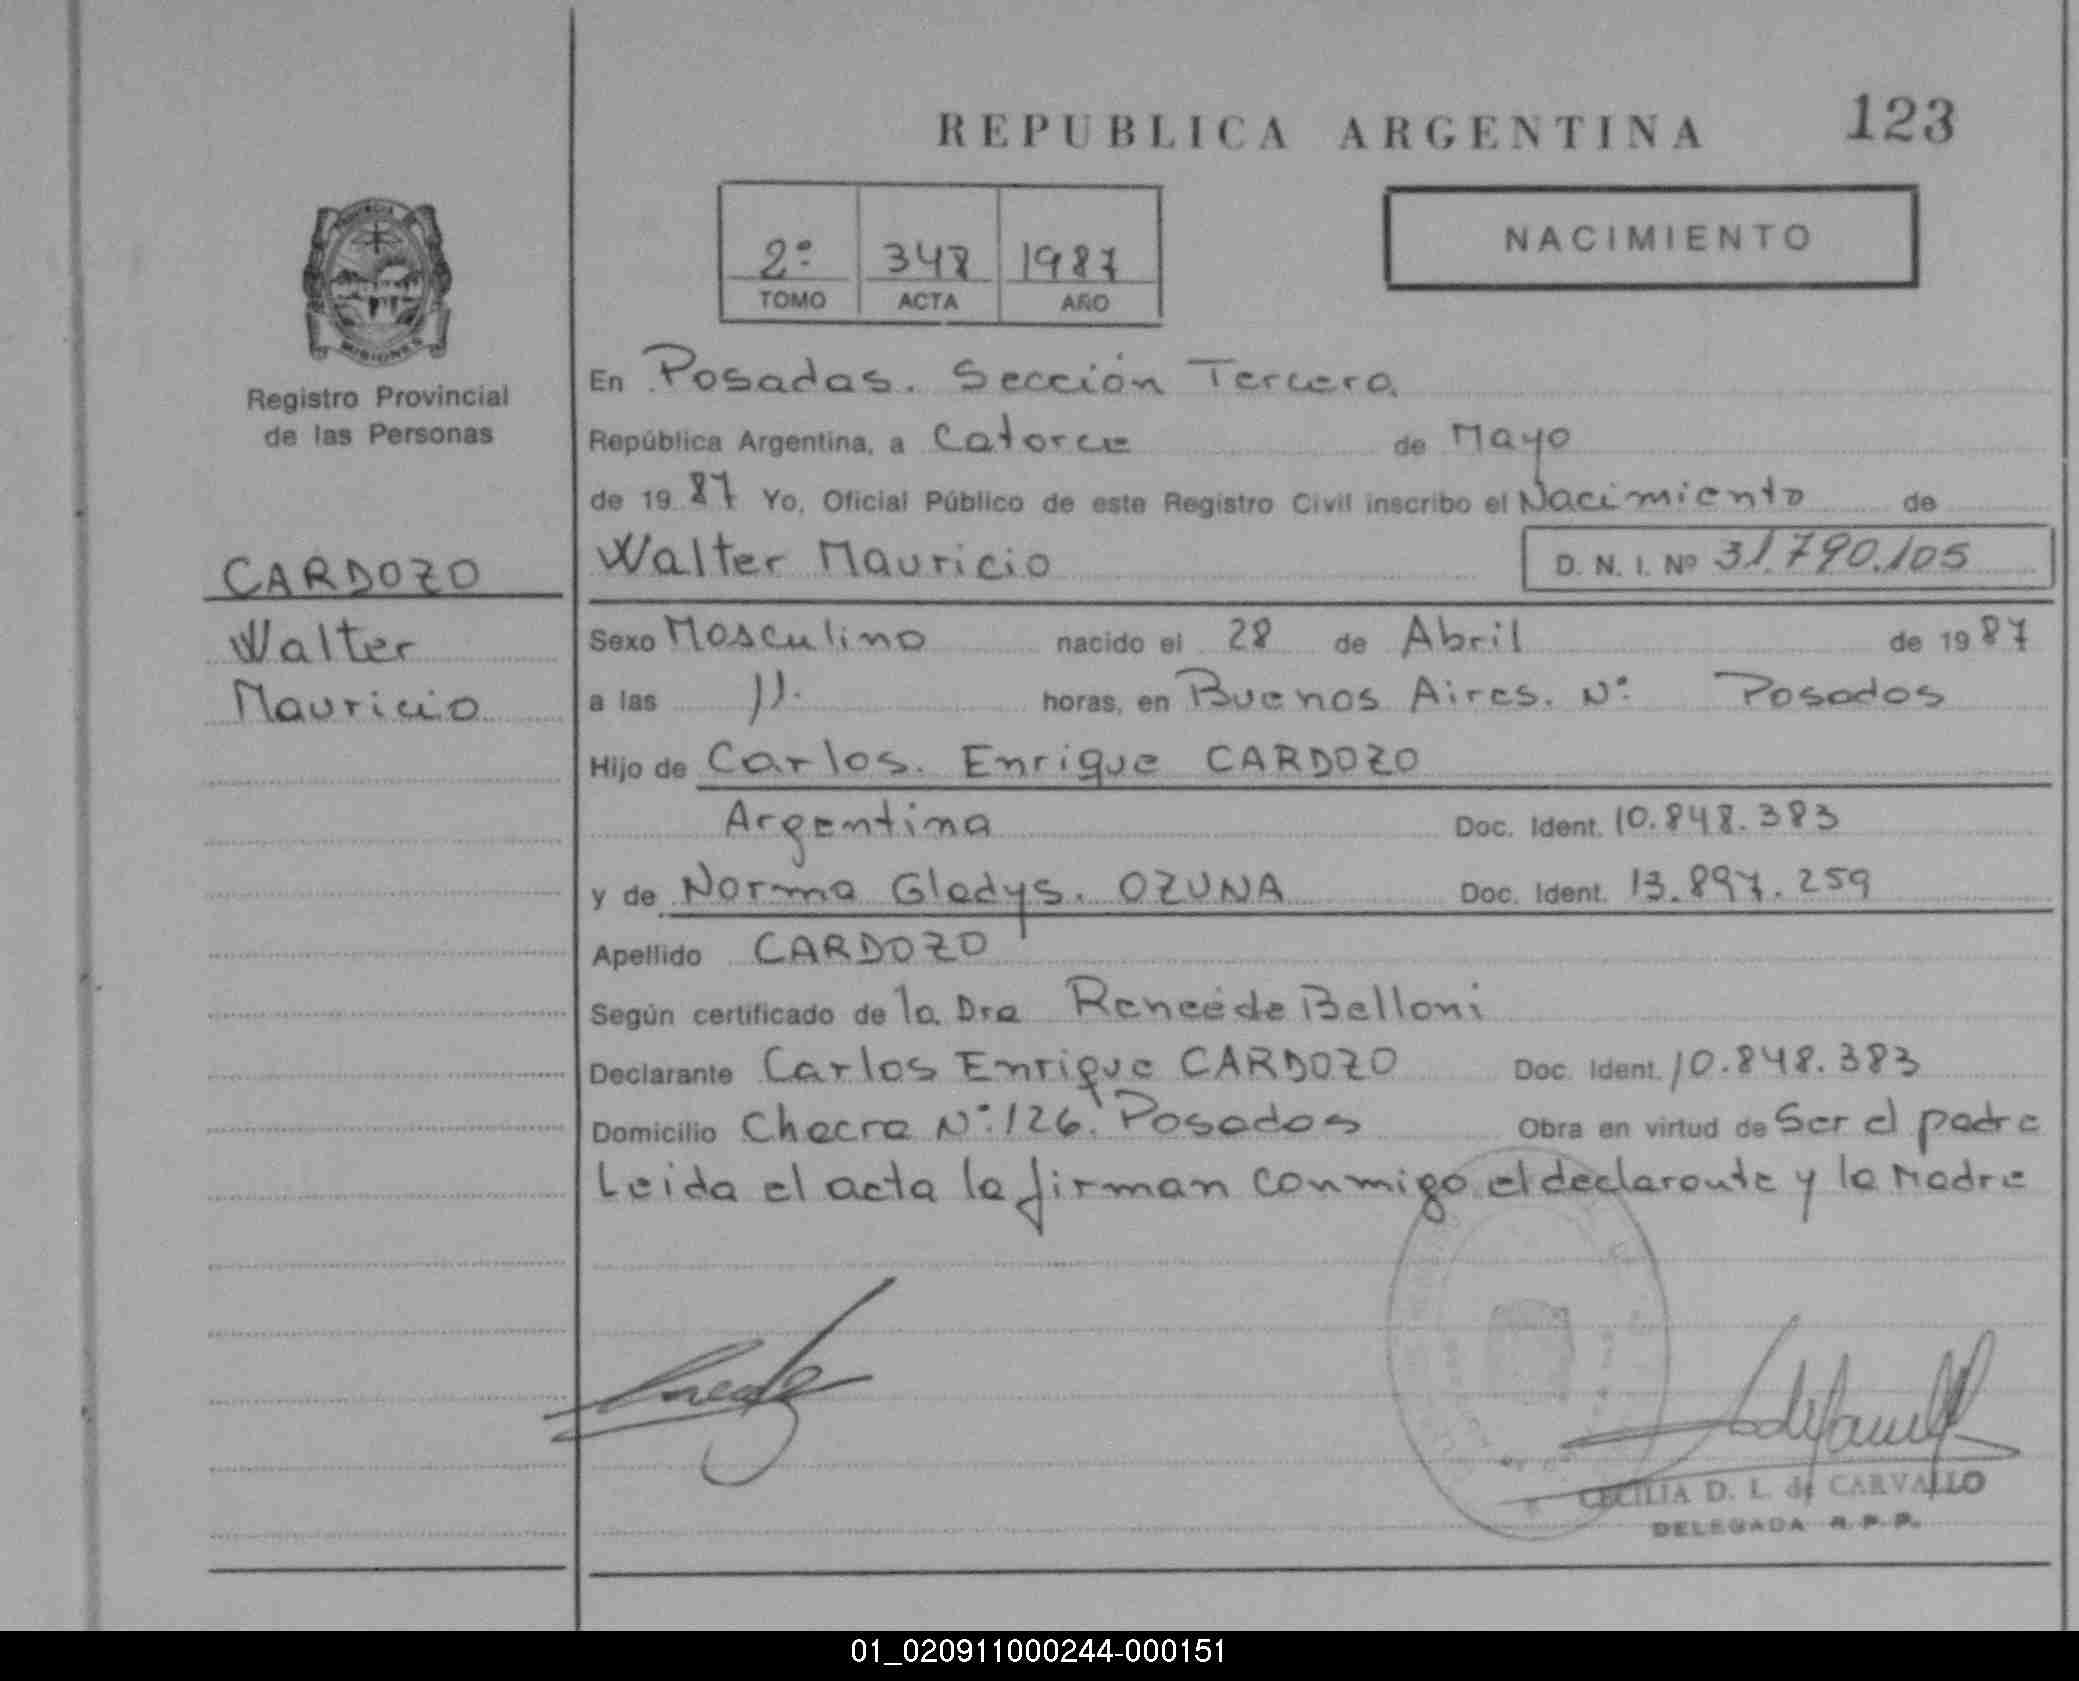 REPUBLICA ARGENTINA
123
NACIMIENTO
2º 348 1987
TOMO ACTA AÑO
PROVINCIA
MISIONES
Registro Provincial
de las Personas
CARDOZO
Walter
Mauricio
En Posadas. Sección Tercera
República Argentina, a Catorce de Mayo
de 19 87 Yo, Oficial Público de este Registro Civil inscribo el Nacimiento de
Walter Mauricio D. N. I. Nº 31.790.105
Sexo Masculino nacido el 28 de Abril de 19 87
a las 11. horas, en Buenos Aires. Nº Posadas
Hijo de Carlos. Enrique CARDOZO
Argentina Doc. Ident. 10.848.383
y de Norma Gladys. OZUNA Doc. Ident. 13.897.259
Apellido CARDOZO
Según certificado de la Dra Reneé de Belloni
Declarante Carlos Enrique CARDOZO Doc. Ident. 10.848.383
Domicilio Chacra Nº 126. Posadas Obra en virtud de Ser el padre
Leida el acta la firman conmigo el declarante y la Madre
CECILIA D. L. de CARVALLO
DELEGADA R. P. P.
01_020911000244-000151